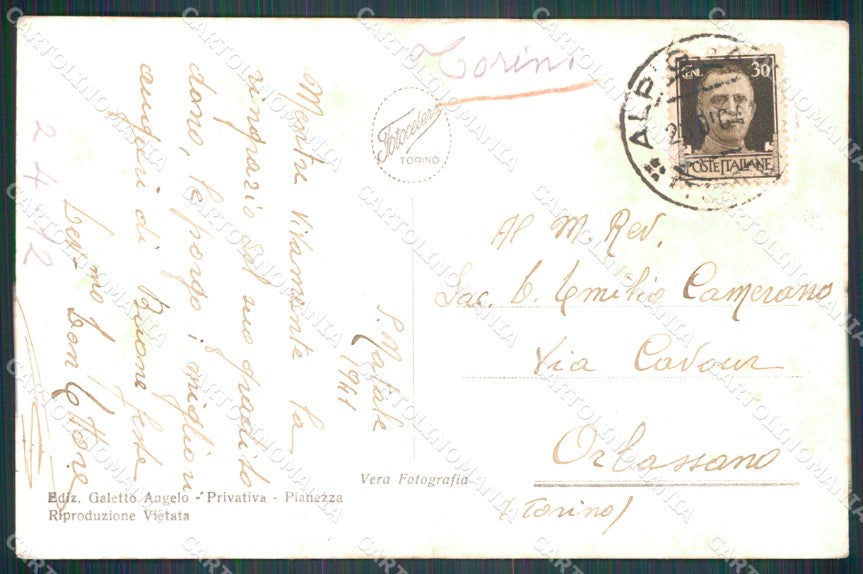 Torino
Fotocelere
TORINO
ALPI
CENT. 30
POSTE ITALIANE
S. Natale
1941
Mentre vivamente la
ringrazio del suo gradito
dono, le porgo i migliori
auguri di Buone feste
Dev.mo Don Ettore
24 12
Al M. Rev.
Sac. D. Emilio Camerano
Via Cavour
Orbassano
(Torino)
Vera Fotografia
Ediz. Galetto Angelo - Privativa - Pianezza
Riproduzione Vietata
CARTOLINOMANIA